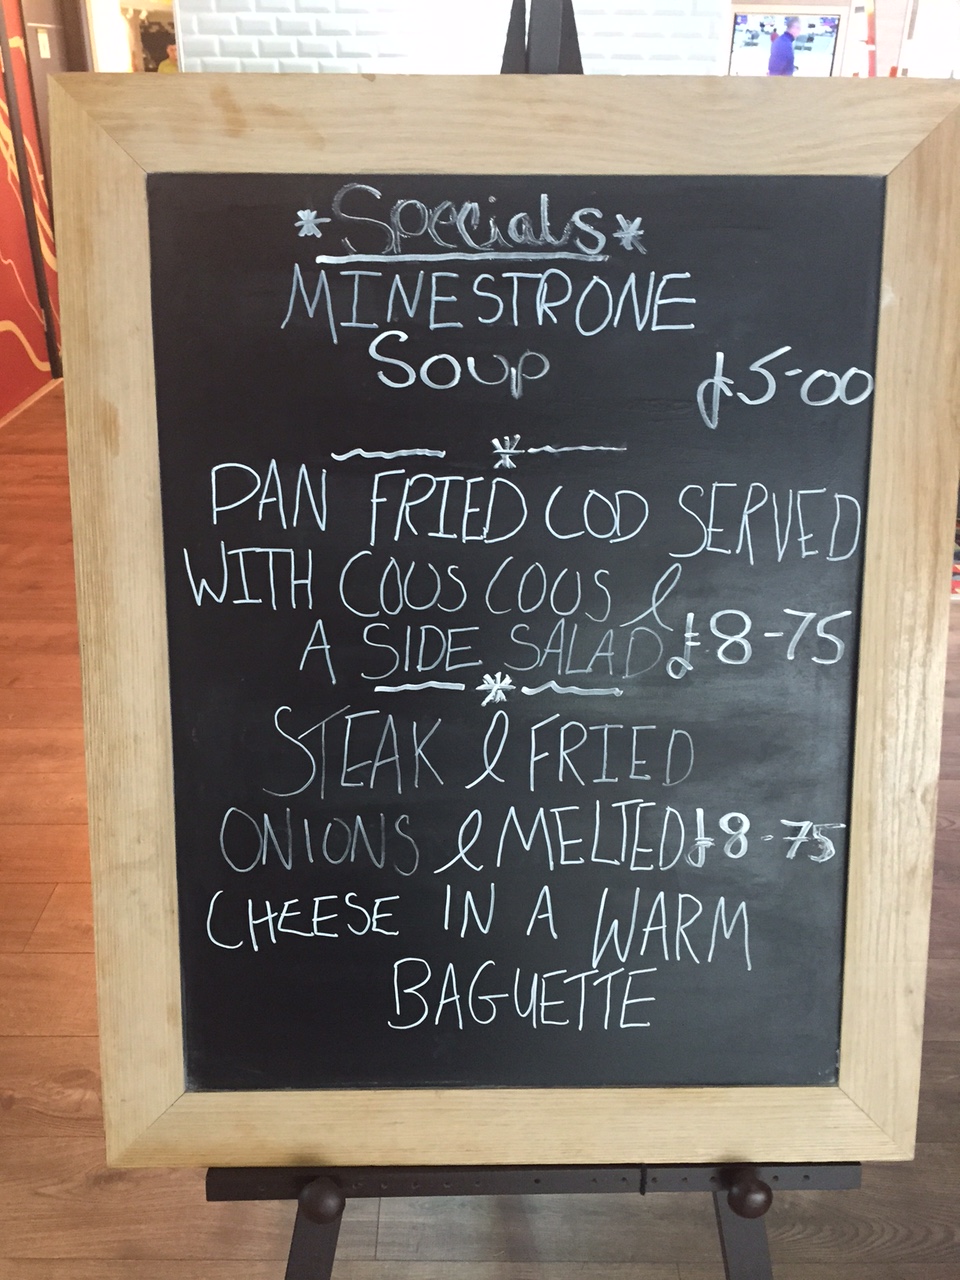 *Specials*
MINESTRONE
Soup
£5-00
PAN FRIED COD SERVED
WITH COUS COUS &
A SIDE SALAD £8-75
STEAK & FRIED
ONIONS & MELTED £8-75
CHEESE IN A WARM
BAGUETTE